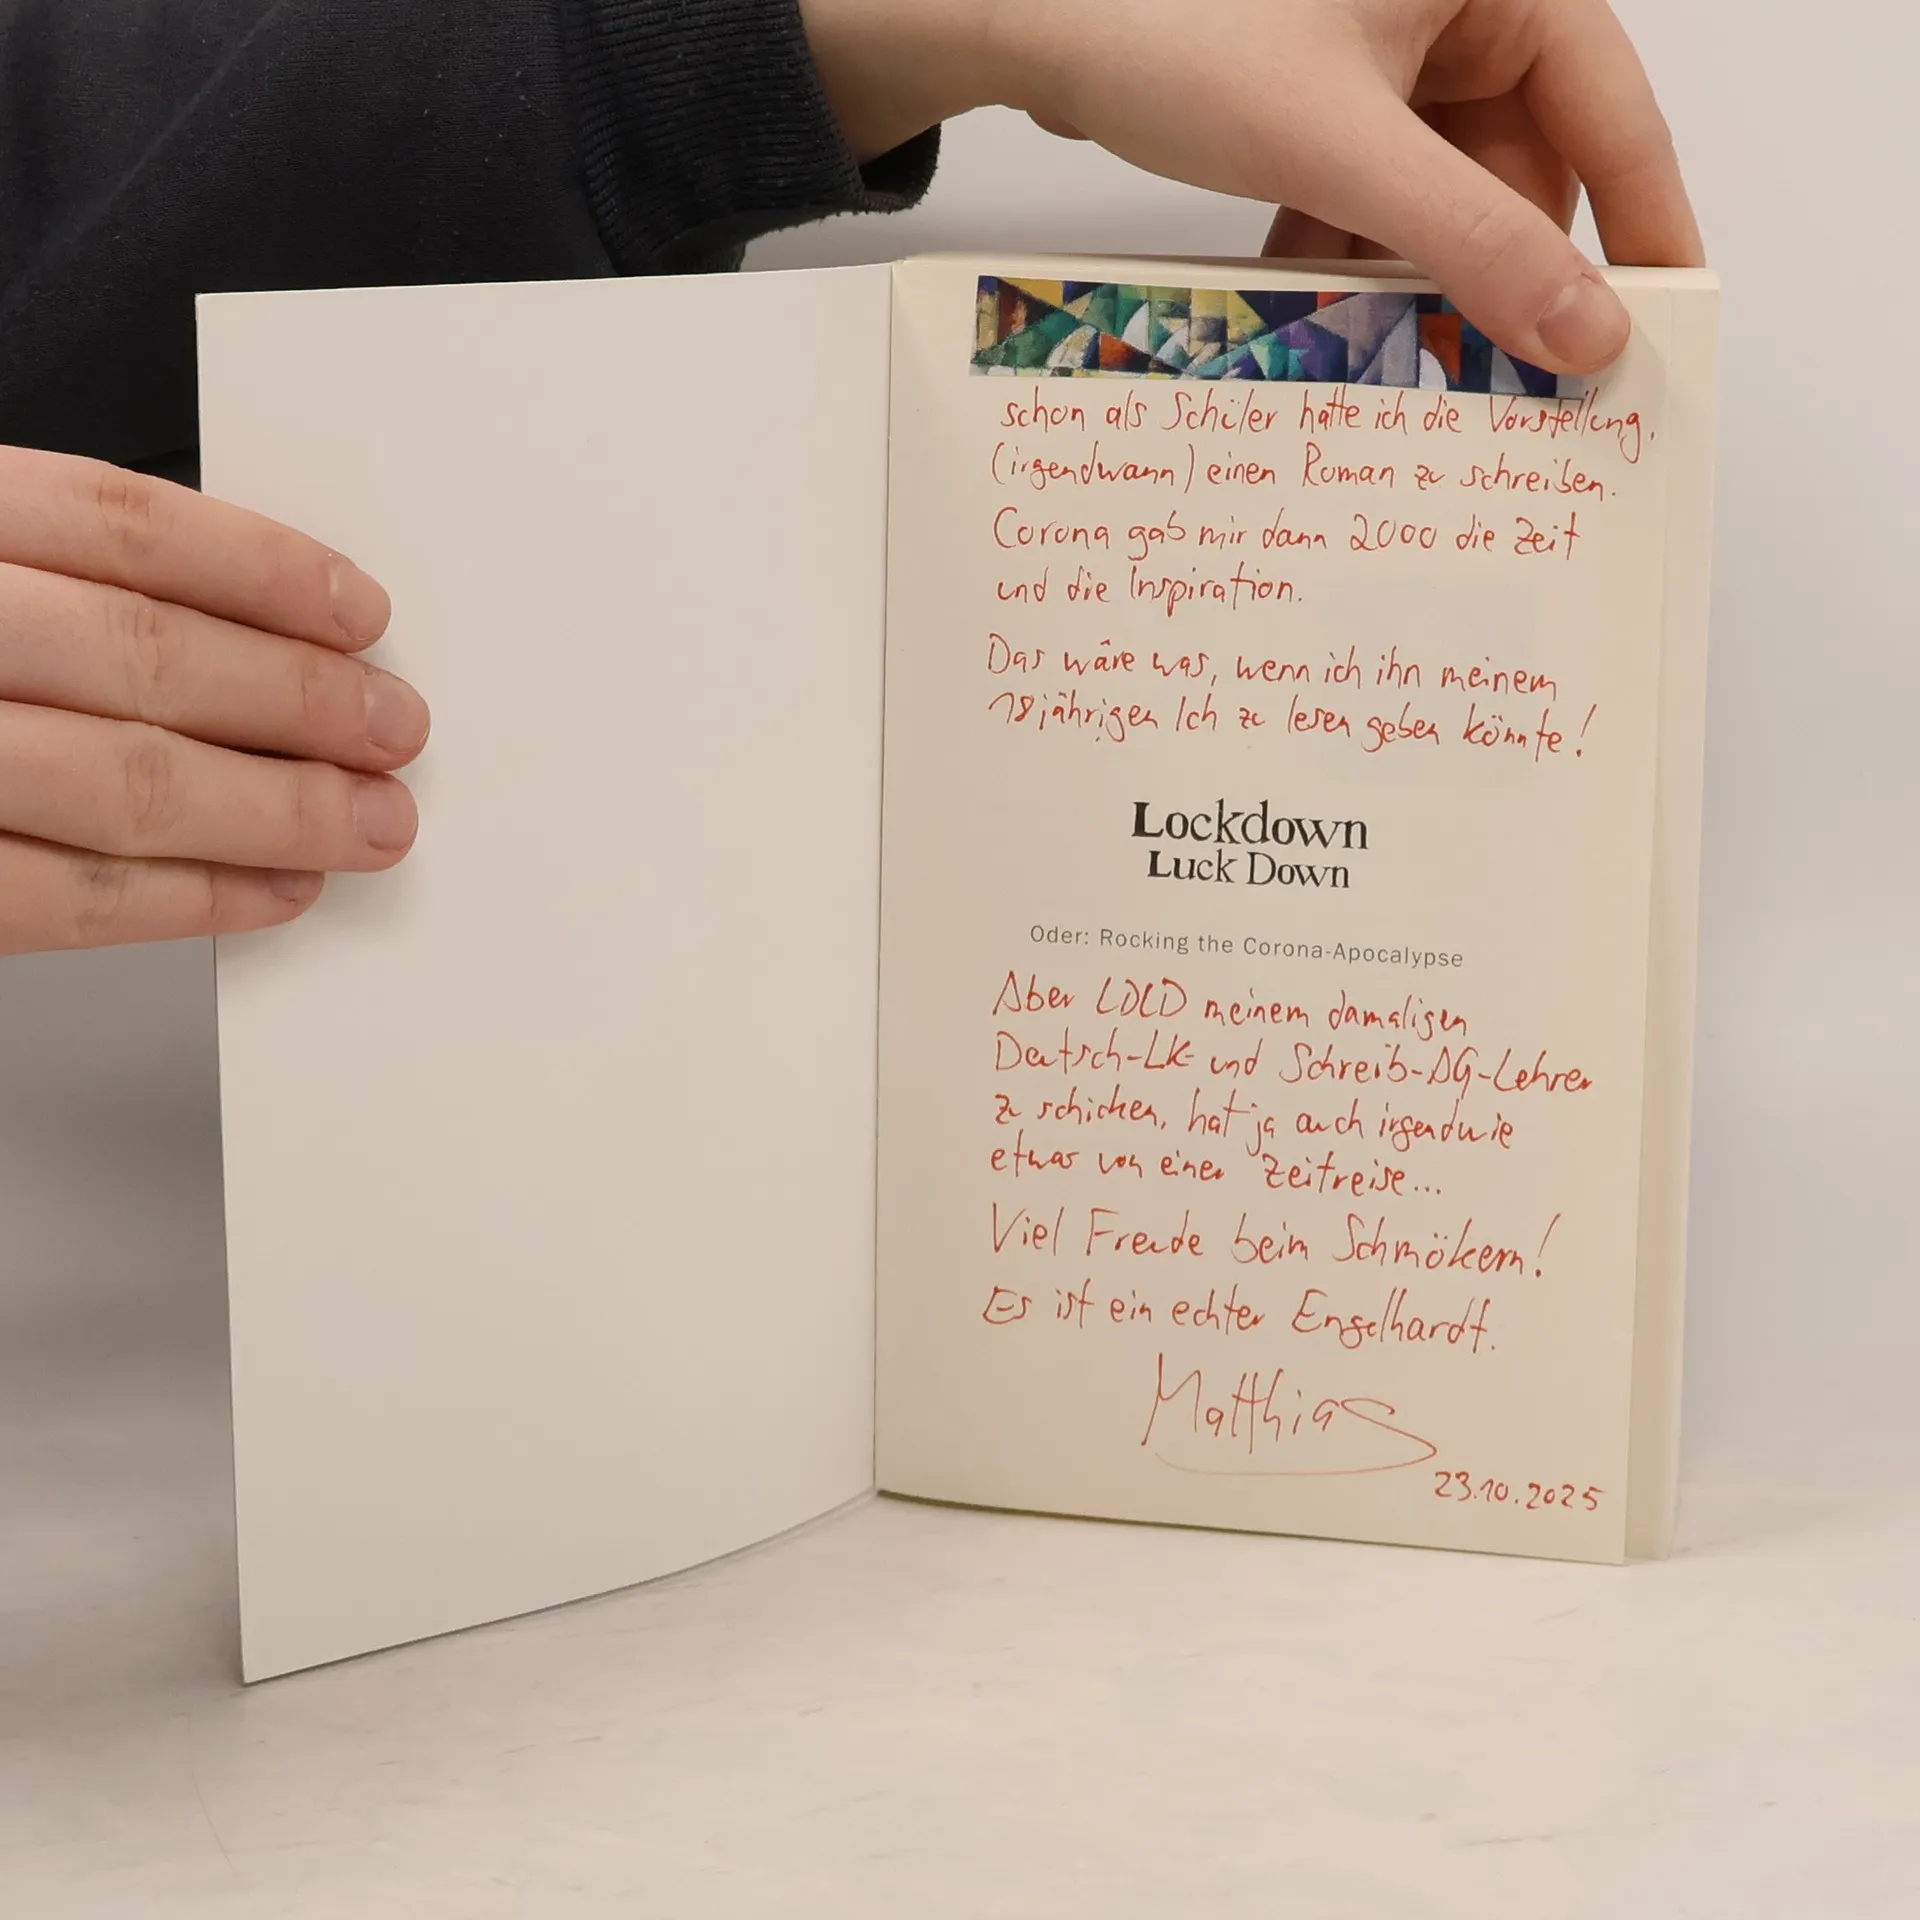 schon als Schüler hatte ich die Vorstellung,
(irgendwann) einen Roman zu schreiben.
Corona gab mir dann 2000 die Zeit
und die Inspiration.
Das wäre was, wenn ich ihn meinem
18jährigen Ich zu lesen geben könnte!
Lockdown
Luck Down
Oder: Rocking the Corona-Apocalypse
Aber LDLD meinem damaligen
Deutsch-LK- und Schreib-AG-Lehrer
zu schicken, hat ja auch irgendwie
etwas von einer Zeitreise...
Viel Freude beim Schmökern!
Es ist ein echter Engelhardt.
Matthias
23.10.2025